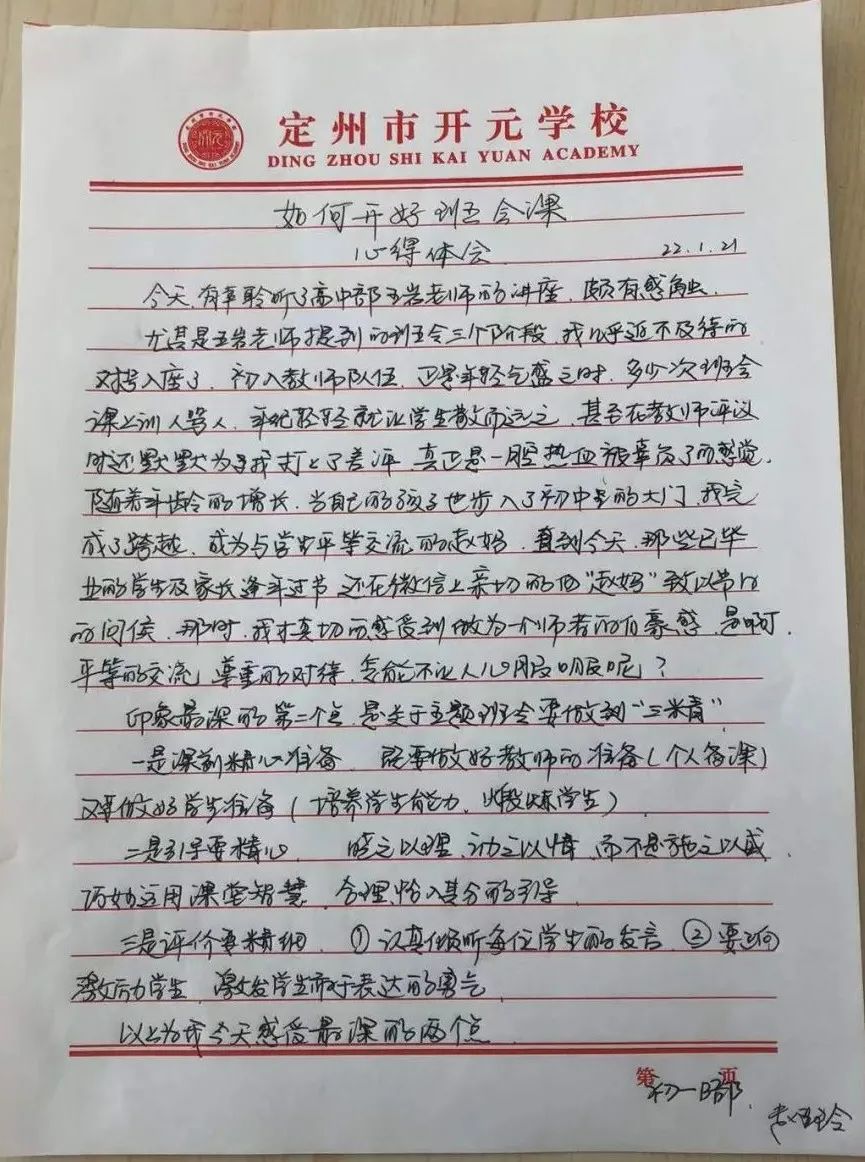 定州市开元学校
DING ZHOU SHI KAI YUAN ACADEMY
如何开好班会课
心得体会 22.1.21
今天,有幸聆听了高中部王岩老师的讲座,颇有感触.
尤其是王岩老师提到的班会三个阶段,我几乎迫不及待的
对号入座了,初入教师队伍,正是年轻气盛之时,多少次班会
课上训人骂人,年纪轻轻就让学生敬而远之,甚至在教师评议
时还默默为我打上了差评,真正是一腔热血被辜负了的感觉.
随着年龄的增长,当自己的孩子也步入了初中的大门,我完
成了跨越,成为与学生平等交流的赵妈,直到今天,那些已毕
业的学生及家长逢年过节还在微信上亲切的向“赵妈”致以节日
的问候,那时,我才真切的感受到做为一个师者的自豪感,是啊,
平等的交流,尊重的对待,怎能不让人心服口服呢?
印象最深的第二个点,是关于主题班会要做到“三精”
一是课前精心准备,既要做好教师的准备(个人备课)
又要做好学生准备(培养学生能力,锻炼学生)
二是引导要精心,晓之以理,动之以情,而不是施之以威,
巧妙运用课堂智慧,合理恰入其分的引导
三是评价要精细,①认真倾听每位学生的发言 ②要
激励学生,激发学生敢于表达的勇气
以上为我今天感受最深的两个点
第 页
初一部.
赵玲